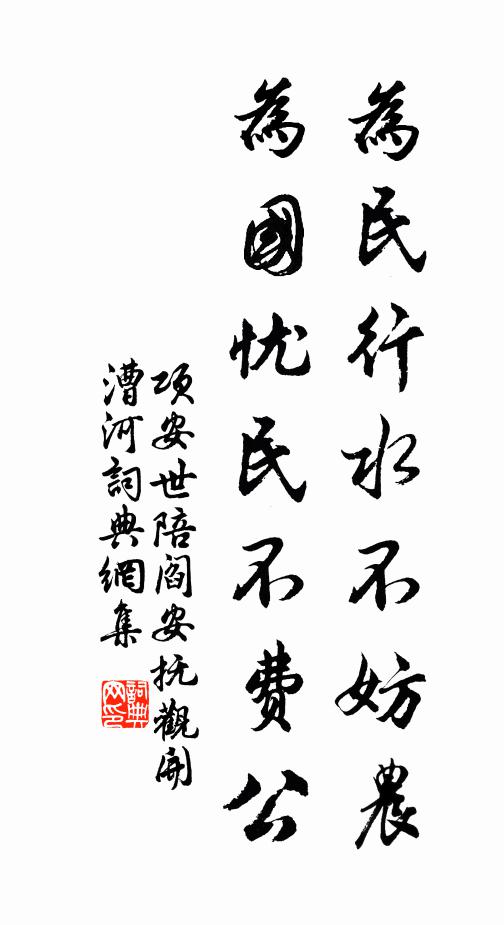 為民行水不妨農
為國忧民不費公
项安世陪阎安抚觀開
漕河詞典網集
詞典
网印